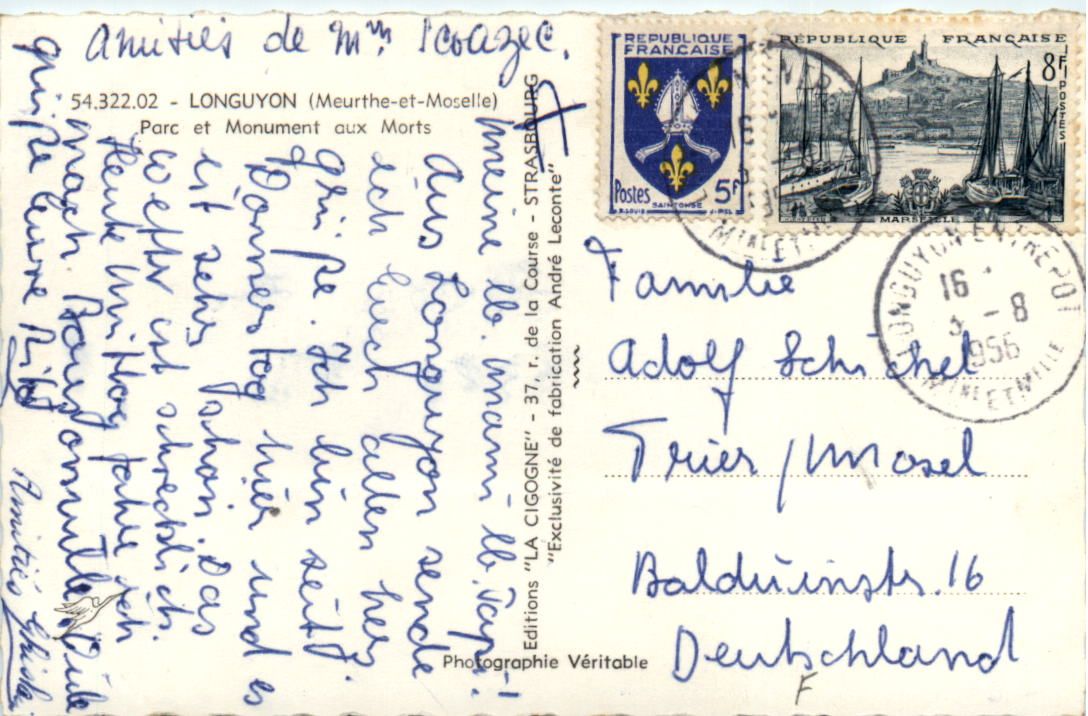 Amitiés de Mme Scoazec.
54.322.02 - LONGUYON (Meurthe-et-Moselle)
Parc et Monument aux Morts
meine lb. Mami lb. Papi!
Aus Longuyon sende
ich Euch allen herz.
Grüße. Ich bin seit
Donnestag hier und es
ist sehr schön. Das
Wetter ist schrecklich.
Heute Mittag fahre ich
nach
Grüße eure
Amitiés
Editions "LA CIGOGNE" - 37, r. de la Course - STRASBOURG
"Exclusivité de fabrication André Leconte"
Photographie Véritable
REPUBLIQUE
FRANCAISE
Postes
5F
SAINTONGE
RÉPUBLIQUE FRANÇAISE
8F
POSTES
MARSEILLE
LONGUYON ENTREPOT
16
3 - 8
1956
Mthe ET Mlle
Familie
Adolf Schichel
Trier / Mosel
Balduinstr. 16
Deutschland
F